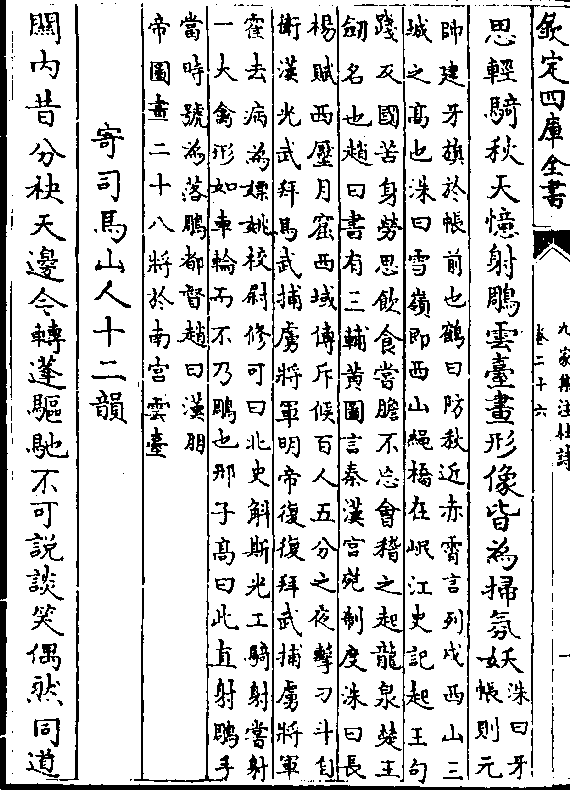 欽定四庫全書
九家集注杜詩
卷二十六
思輕騎秋天憶射鵰雲臺畫形像皆為掃氛妖洙曰牙帳則元
帥建牙旗於帳前也鶴曰防秋近赤霄言列戍西山三
城之高也洙曰雪嶺即西山繩橋在岷江史記起王句
踐反國苦身勞思飲食當膽不忘會稽之起龍泉楚王
劒名也趙曰書有三輔黄圖言秦漢宫苑制度洙曰長
楊賦西壓月窟西域傳斥候百人五分之夜擊刁斗自
衛漢光武拜馬武捕虜將軍明帝復復拜武捕虜將軍
霍去病為嫖姚校尉修可曰北史斛斯光工騎射嘗射
一大禽形如車輪而下乃鵰也邢子髙曰此直射鵰手
當時號為落鵰都督趙曰漢明
帝圖畫二十八將於南宮雲臺
寄司馬山人十二韻
關内昔分袂天邊今轉蓬驅馳不可說談笑偶然同道